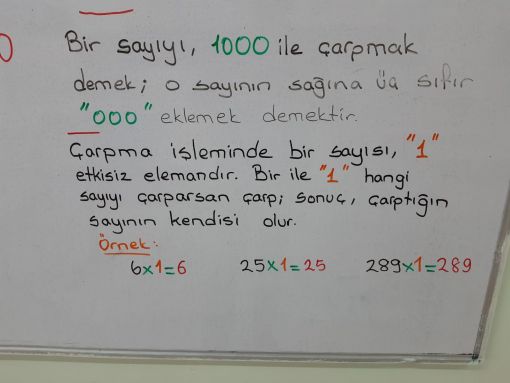 Bir sayıyı, 1000 ile çarpmak
demek; o sayının sağına üç sıfır
"000" eklemek demektir.
Çarpma işleminde bir sayısı, "1"
etkisiz elemandır. Bir ile "1" hangi
sayıyı çarparsan çarp; sonuç, çarptığın
sayının kendisi olur.
Örnek:
6x1=6 25x1=25 289x1=289